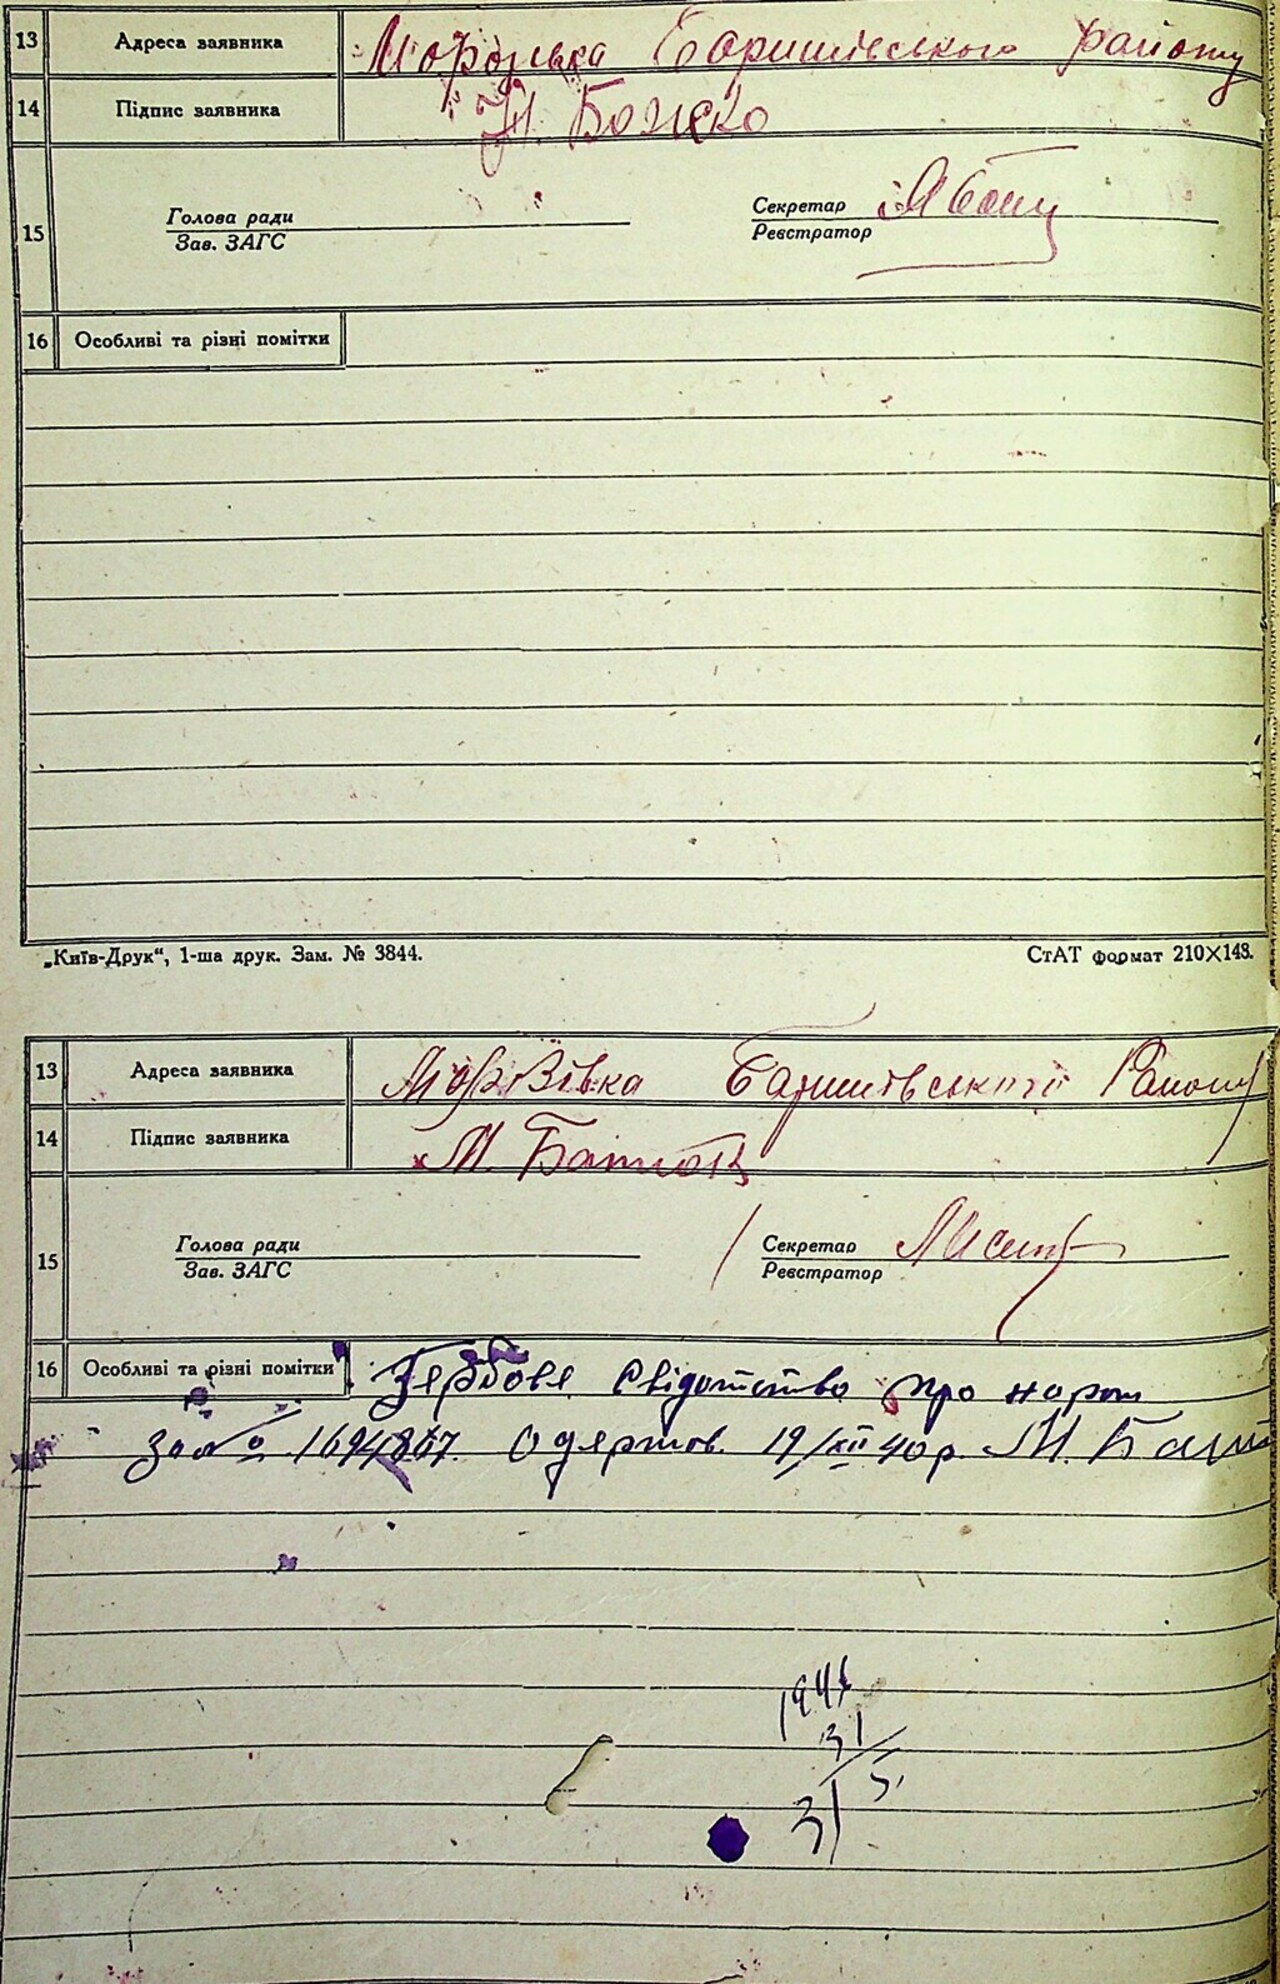 13 Адреса заявника Морозівка Баришівського району
14 Підпис заявника Н. Божко
Голова ради Секретар
15
Зав. ЗАГС Реєстратор
16 Особливі та різні помітки
„Київ-Друк“, 1-ша друк. Зам. № 3844. СтАТ формат 210×148.
13 Адреса заявника Морозівка Баришівського Району
14 Підпис заявника М.
Голова ради Секретар
15
Зав. ЗАГС Реєстратор
16 Особливі та різні помітки Гербове свідотство про народ
за № 1694867. Одержав. 19/XII 40 р. М.
1941
31
5.
31